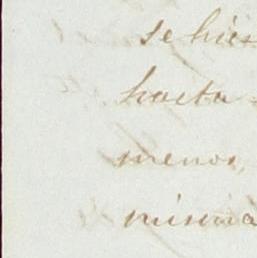 se hici
hasta
menos,
misma